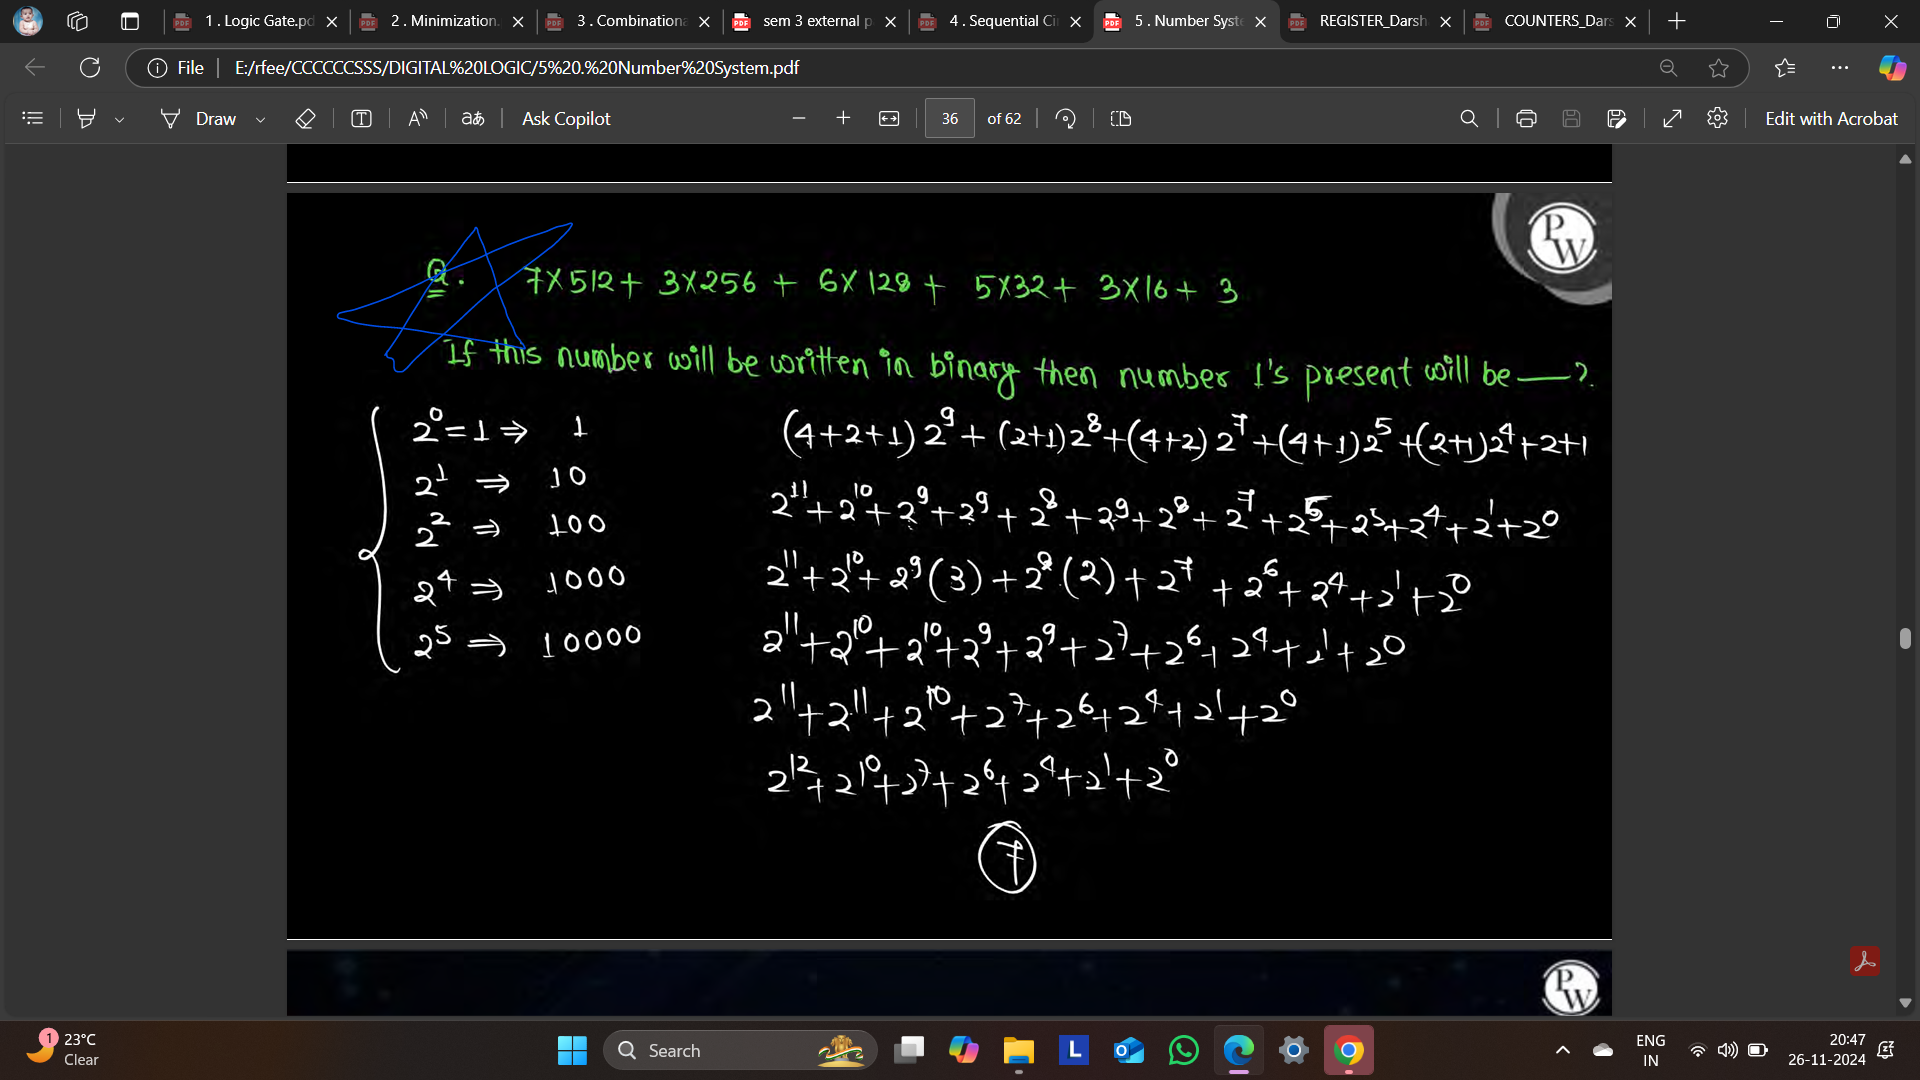 1 . Logic Gate.pd
2 . Minimization.
3 . Combinationa
sem 3 external p
4 . Sequential Ci
5 . Number Syste
REGISTER_Darsh
COUNTERS_Dars
File
E:/rfee/CCCCCCSSS/DIGITAL%20LOGIC/5%20.%20Number%20System.pdf
Draw
aあ
Ask Copilot
36 of 62
Edit with Acrobat
PW
Q. 7×512 + 3×256 + 6×128 + 5×32 + 3×16 + 3
If this number will be written in binary then number 1's present will be — ?
2⁰ = 1 ⇒ 1
2¹ ⇒ 10
2² ⇒ 100
2⁴ ⇒ 1000
2⁵ ⇒ 10000
(4+2+1) 2⁹ + (2+1) 2⁸ + (4+2) 2⁷ + (4+1) 2⁵ + (2+1) 2⁴ + 2+1
2¹¹ + 2¹⁰ + 2⁹ + 2⁹ + 2⁸ + 2⁹ + 2⁸ + 2⁷ + 2⁵ + 2⁵ + 2⁴ + 2¹ + 2⁰
2¹¹ + 2¹⁰ + 2⁹ (3) + 2⁸ (2) + 2⁷ + 2⁶ + 2⁴ + 2¹ + 2⁰
2¹¹ + 2¹⁰ + 2¹⁰ + 2⁹ + 2⁹ + 2⁷ + 2⁶ + 2⁴ + 2¹ + 2⁰
2¹¹ + 2¹¹ + 2¹⁰ + 2⁷ + 2⁶ + 2⁴ + 2¹ + 2⁰
2¹² + 2¹⁰ + 2⁷ + 2⁶ + 2⁴ + 2¹ + 2⁰
7
PW
1
23°C
Clear
Search
L
ENG
IN
20:47
26-11-2024